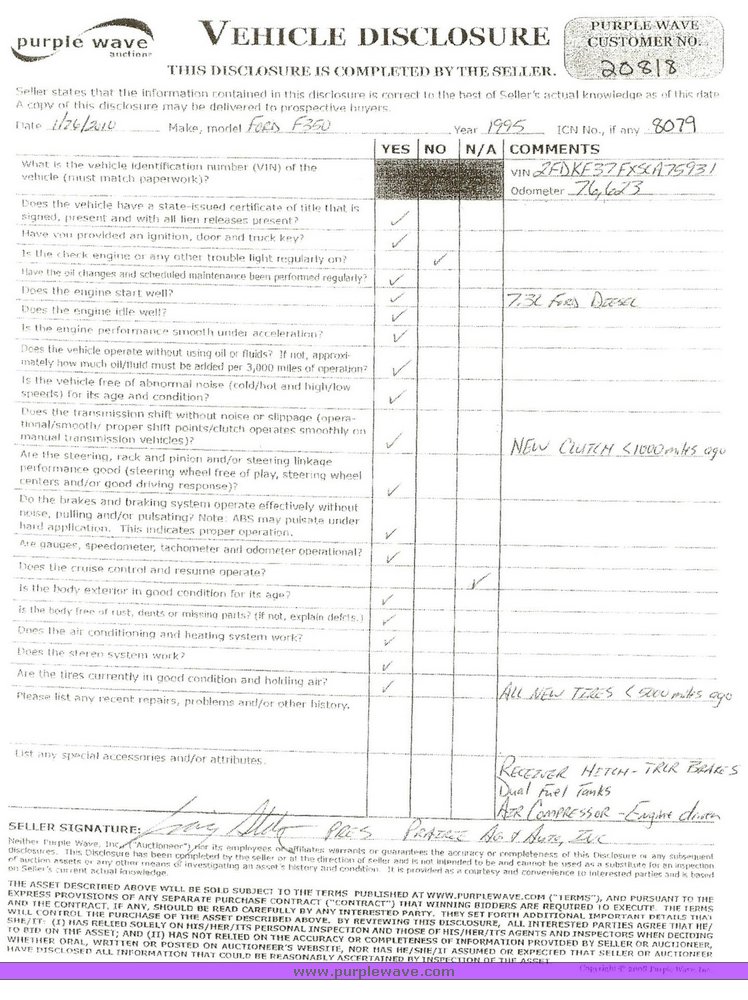 purple wave
auction®
VEHICLE DISCLOSURE
THIS DISCLOSURE IS COMPLETED BY THE SELLER.
PURPLE WAVE
CUSTOMER NO.
20818
Seller states that the information contained in this disclosure is correct to the best of Seller's actual knowledge as of this date.
A copy of this disclosure may be delivered to prospective buyers.
Date 1/26/2010 Make, model FORD F350 Year 1995 ICN No., if any 8079
YES NO N/A COMMENTS
What is the vehicle identification number (VIN) of the
vehicle (must match paperwork)?
VIN 2FDKF37FXSCA75931
Odometer 76,623
Does the vehicle have a state-issued certificate of title that is
signed, present and with all lien releases present? ✓
Have you provided an ignition, door and truck key? ✓
Is the check engine or any other trouble light regularly on? ✓
Have the oil changes and scheduled maintenance been performed regularly? ✓
Does the engine start well? ✓ 7.3L FORD DIESEL
Does the engine idle well? ✓
Is the engine performance smooth under acceleration? ✓
Does the vehicle operate without using oil or fluids? If not, approxi-
mately how much oil/fluid must be added per 3,000 miles of operation? ✓
Is the vehicle free of abnormal noise (cold/hot and high/low
speeds) for its age and condition? ✓
Does the transmission shift without noise or slippage (opera-
tional/smooth/ proper shift points/clutch operates smoothly on
manual transmission vehicles)? ✓ NEW CLUTCH <1000 miles ago
Are the steering, rack and pinion and/or steering linkage
performance good (steering wheel free of play, steering wheel
centers and/or good driving response)? ✓
Do the brakes and braking system operate effectively without
noise, pulling and/or pulsating? Note: ABS may pulsate under
hard application. This indicates proper operation. ✓
Are gauges, speedometer, tachometer and odometer operational? ✓
Does the cruise control and resume operate? ✓
Is the body exterior in good condition for its age? ✓
Is the body free of rust, dents or missing parts? (if not, explain defcts.) ✓
Does the air conditioning and heating system work? ✓
Does the stereo system work? ✓
Are the tires currently in good condition and holding air? ✓ ALL NEW TIRES <5000 miles ago
Please list any recent repairs, problems and/or other history.
List any special accessories and/or attributes.
RECEIVER HITCH - TRLR BRAKES
Dual Fuel Tanks
AIR COMPRESSOR - Engine driven
SELLER SIGNATURE: PRES PRAIRIE AG & AUTO, INC
Neither Purple Wave, Inc. ("Auctioneer") nor its employees or affiliates warrants or guarantees the accuracy or completeness of this Disclosure or any subsequent
disclosures. This Disclosure has been completed by the seller or at the direction of seller and is not intended to be and cannot be used as a substitute for an inspection
of auction assets or any other means of investigating an asset's history and condition. It is provided as a courtesy and convenience to interested parties and is based
on Seller's current actual knowledge.
THE ASSET DESCRIBED ABOVE WILL BE SOLD SUBJECT TO THE TERMS PUBLISHED AT WWW.PURPLEWAVE.COM ("TERMS"), AND PURSUANT TO THE
EXPRESS PROVISIONS OF ANY SEPARATE PURCHASE CONTRACT ("CONTRACT") THAT WINNING BIDDERS ARE REQUIRED TO EXECUTE. THE TERMS
AND THE CONTRACT, IF ANY, SHOULD BE READ CAREFULLY BY ANY INTERESTED PARTY. THEY SET FORTH ADDITIONAL IMPORTANT DETAILS THAT
WILL CONTROL THE PURCHASE OF THE ASSET DESCRIBED ABOVE. BY REVIEWING THIS DISCLOSURE, ALL INTERESTED PARTIES AGREE THAT HE/
SHE/IT: (I) HAS RELIED SOLELY ON HIS/HER/ITS PERSONAL INSPECTION AND THOSE OF HIS/HER/ITS AGENTS AND INSPECTORS WHEN DECIDING
TO BID ON THE ASSET; AND (II) HAS NOT RELIED ON THE ACCURACY OR COMPLETENESS OF INFORMATION PROVIDED BY SELLER OR AUCTIONEER,
WHETHER ORAL, WRITTEN OR POSTED ON AUCTIONEER'S WEBSITE, NOR HAS HE/SHE/IT ASSUMED OR EXPECTED THAT SELLER OR AUCTIONEER
HAVE DISCLOSED ALL INFORMATION THAT COULD BE REASONABLY ASCERTAINED BY INSPECTION OF THE ASSET.
Copyright © 2008 Purple Wave, Inc.
www.purplewave.com